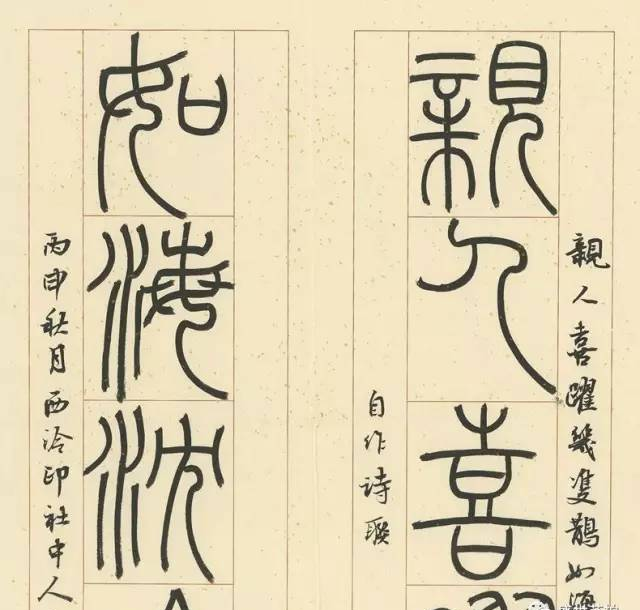 親人喜躍幾隻鵲如海
親人喜
自作詩聯
如海沈
丙申秋月西泠印社中人